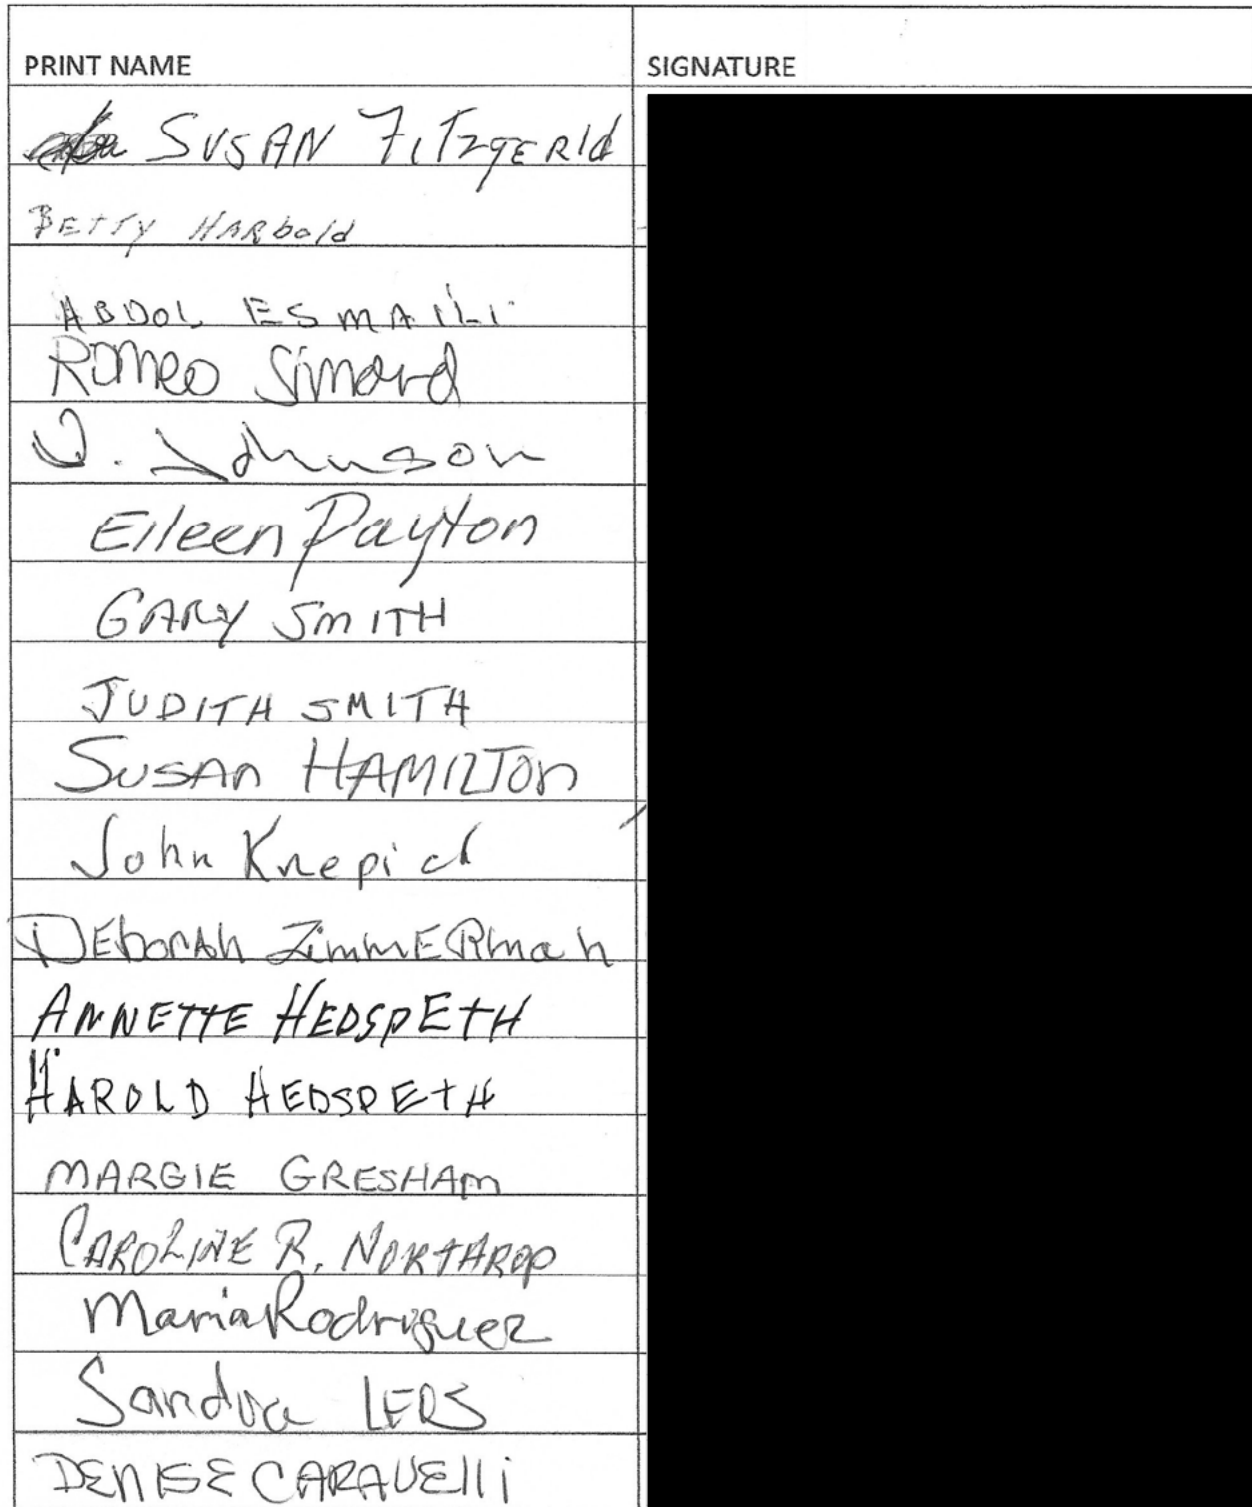 PRINT NAME SIGNATURE
SUSAN FITzgERld
BETTY HARbold
ABDOL ESMAILI
Romeo Simard
Johnson
Eileen Payton
GARY SMITH
JUDITH SMITH
SUSAN HAMILTON
John
DEborAh ZimmERman
ANNETTE HEDSPETH
HAROLD HEDSPETH
MARGIE GRESHAM
CAROLINE R. NORTHROP
Maria Rodriguez
Sandra
DENISE CARAVElli